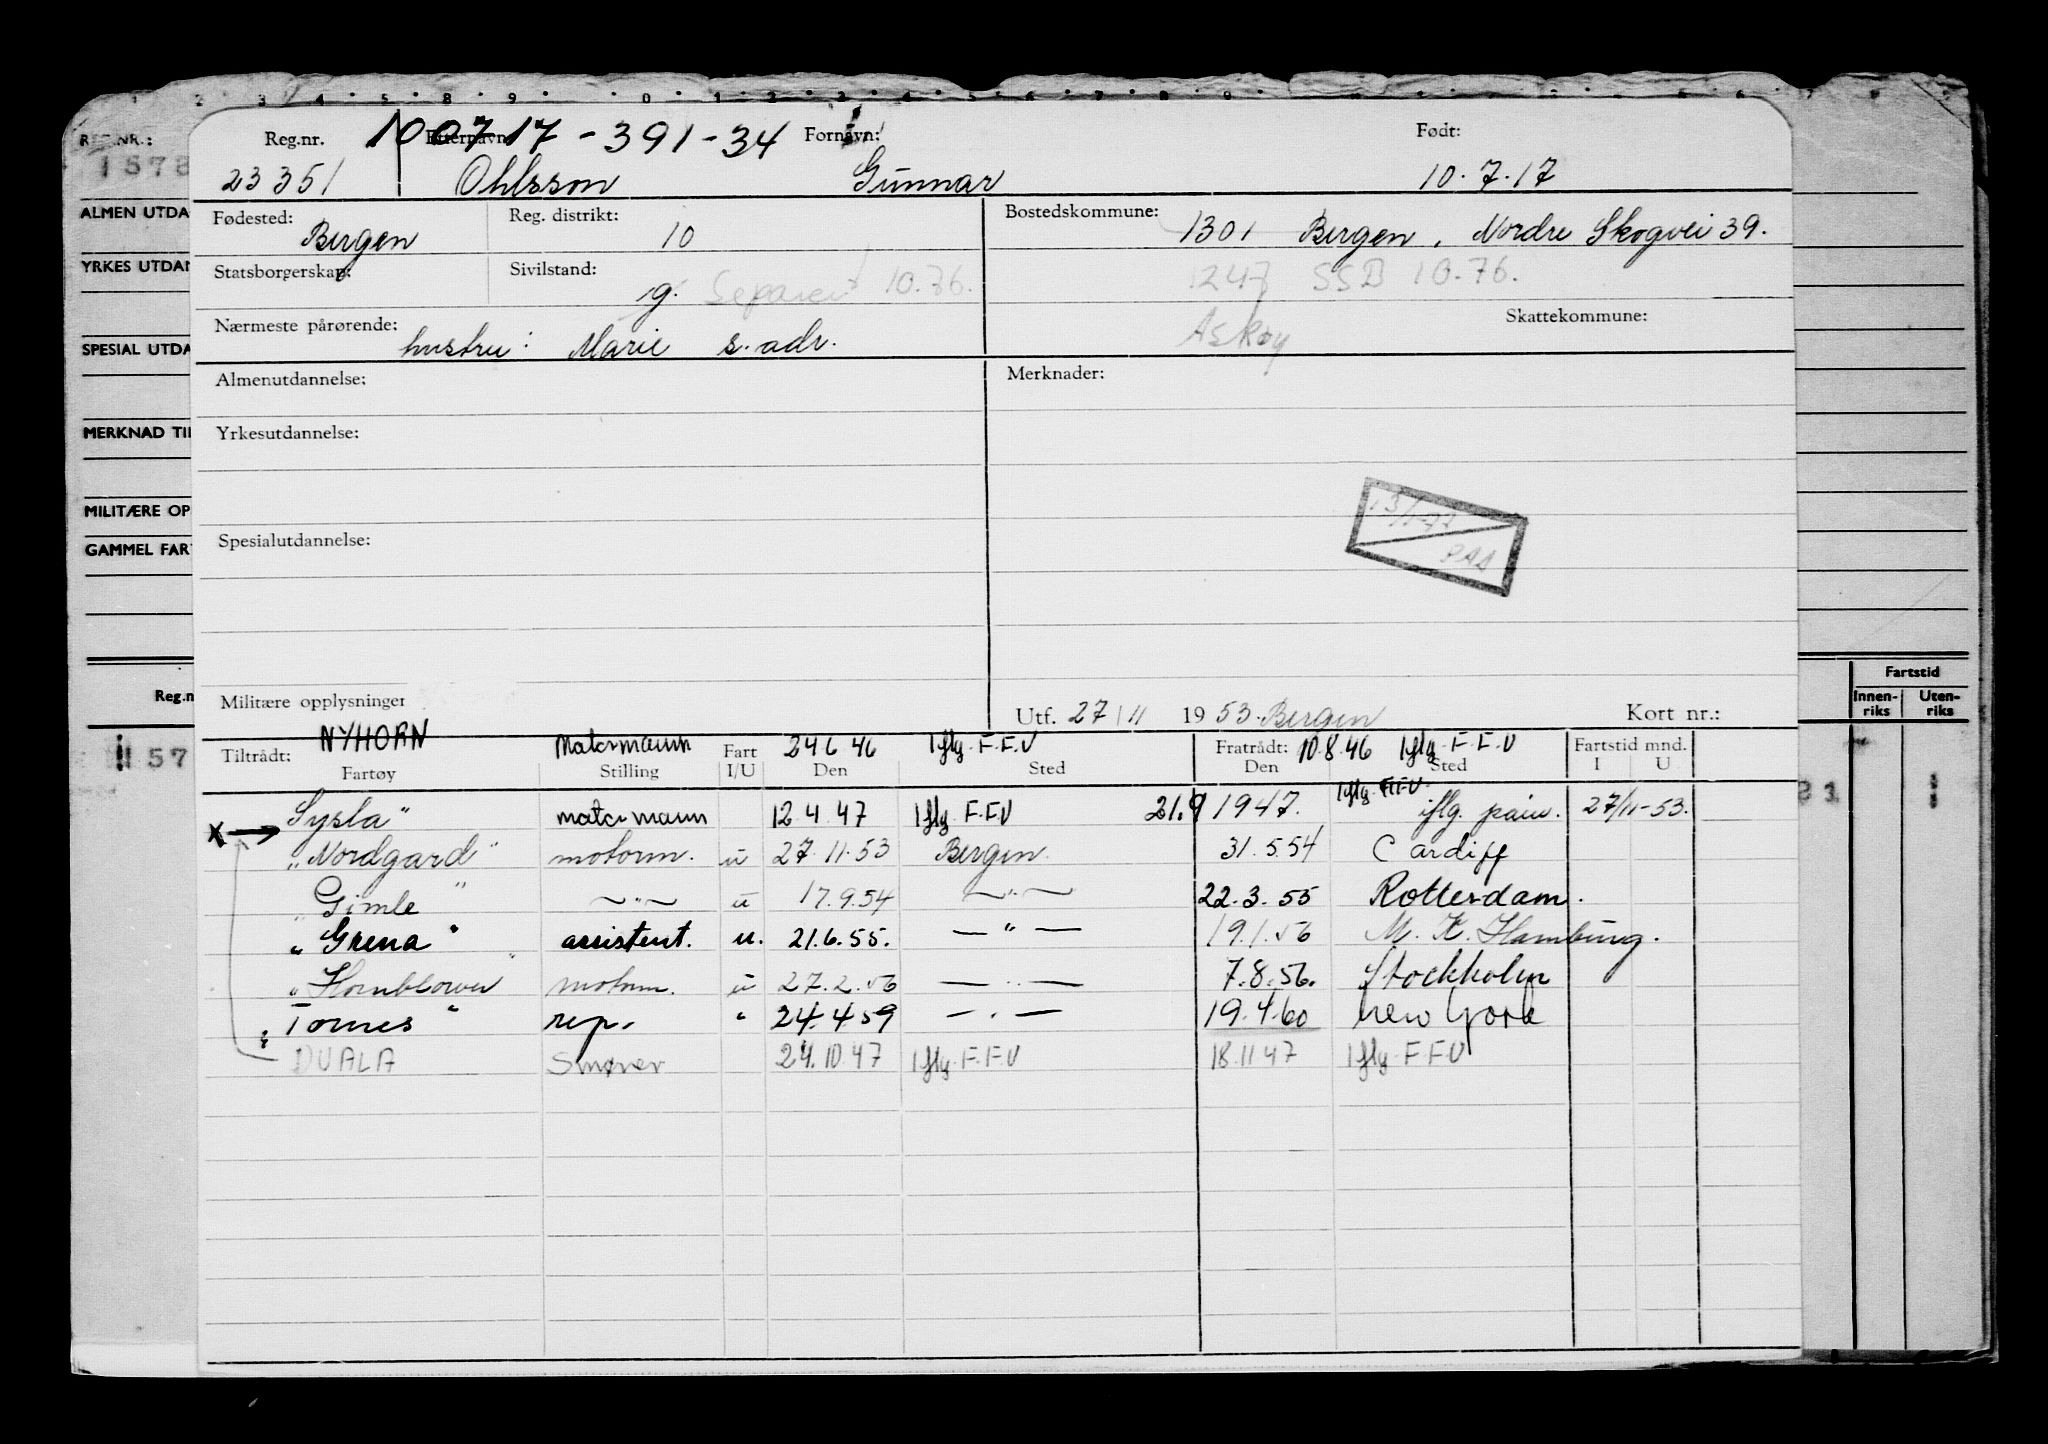 REG.NR.: 1578
Reg.nr. 100717-391-34 Etternavn: Fornavn: Født:
23351 Ohlsson Gunnar 10.7.17
ALMEN UTDA
Fødested: Bergen Reg. distrikt: 10 Bostedskommune: 1301 Bergen, Nordre Skogvei 39.
YRKES UTDAN
Statsborgerskap: Sivilstand: g. Separert 10.76. 1247 SSB 10.76.
Nærmeste pårørende: hustru: Marie s. adr. Askøy Skattekommune:
SPESIAL UTDA
Almenutdannelse: Merknader:
MERKNAD TIL
Yrkesutdannelse:
MILITÆRE OP
13/1-77
PAA
Spesialutdannelse:
GAMMEL FART
Fartstid
Reg.n Innen-riks Uten-riks
Militære opplysninger Utf. 27/11 1953 Bergen Kort nr.:
57
Tiltrådt: NYHORN Matrosmann Fart 24 6 46 Iflg. F.F.U Fratrådt: 10.8.46 Iflg. F.F.U Fartstid mnd.
Fartøy Stilling I/U Den Sted Den Sted I U
X → Sysla" 12.4.47 Iflg. F.F.U 21.9 1947. Iflg. F.F.U iflg. påm. 27/11-53. 81
"Nordgard" motorm. u 27.11.53 Bergen 31.5.54 Cardiff
"Gimle" —"— u 17.9.54 —"— 22.3.55 Rotterdam.
"Grena" assistent. u. 21.6.55. —"— 19.1.56 M. K. Hamburg.
"Hornblower" motorm. u 27.2.56 —"— 7.8.56. Stockholm
"Tornes" rep. " 24.4.59 —"— 19.4.60 New York
DUALA Smører 24.10.47 Iflg. F.F.U 18.11 47 Iflg. F.F.U